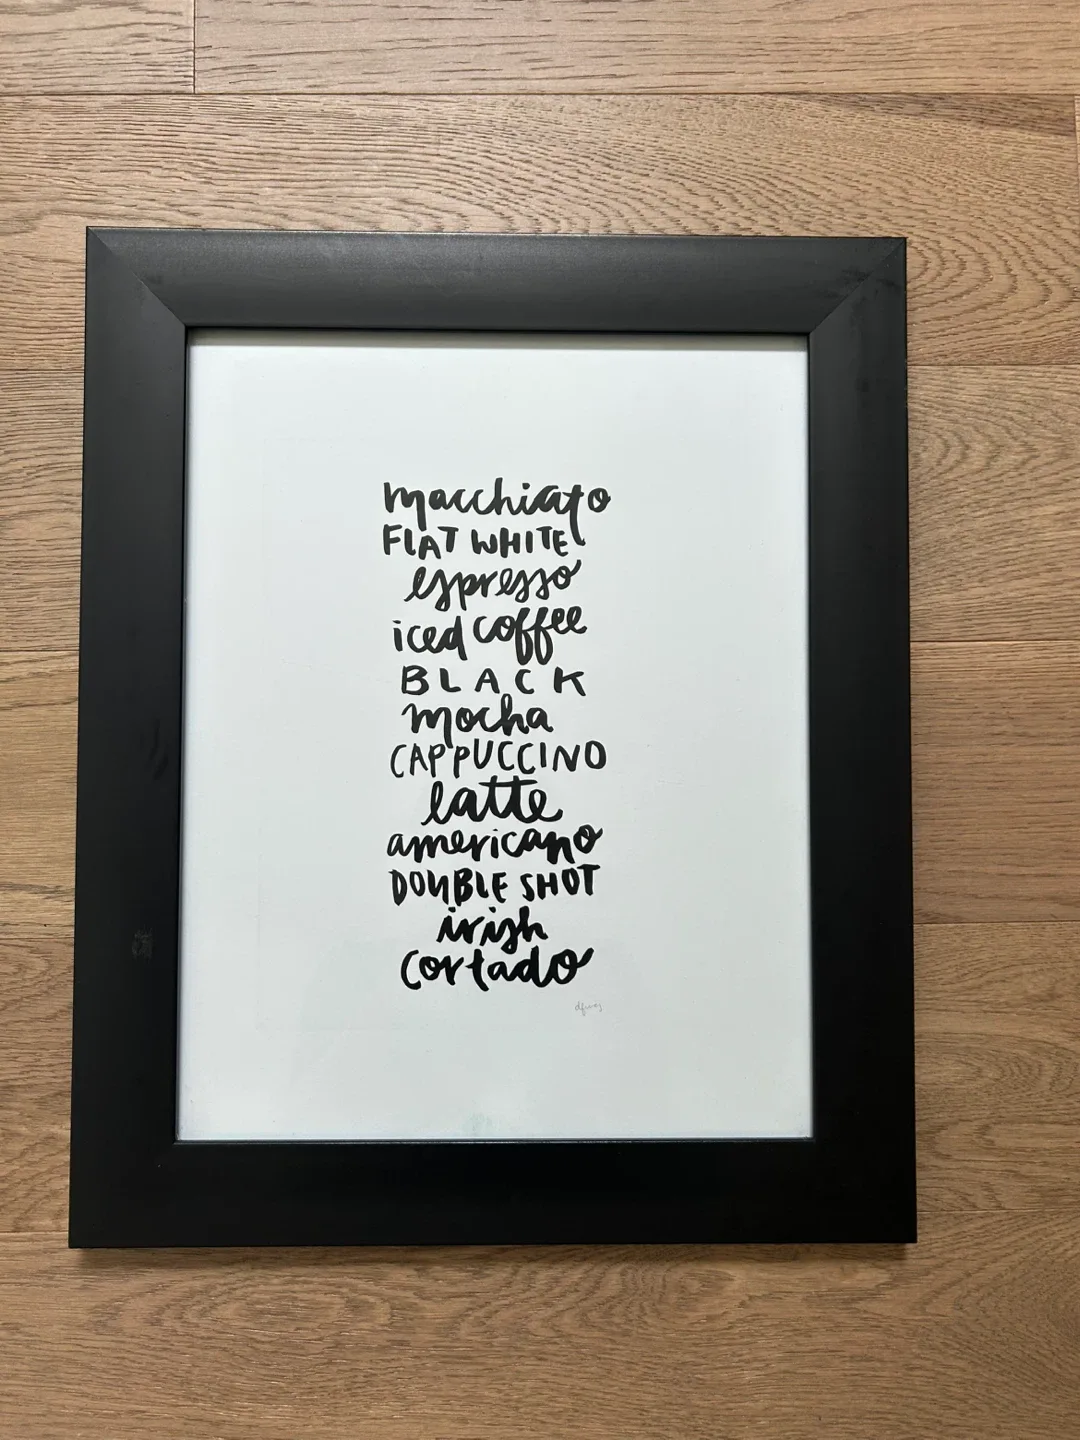 macchiato
FLAT WHITE
espresso
iced coffee
BLACK
mocha
CAPPUCCINO
latte
americano
DOUBLE SHOT
irish
cortado